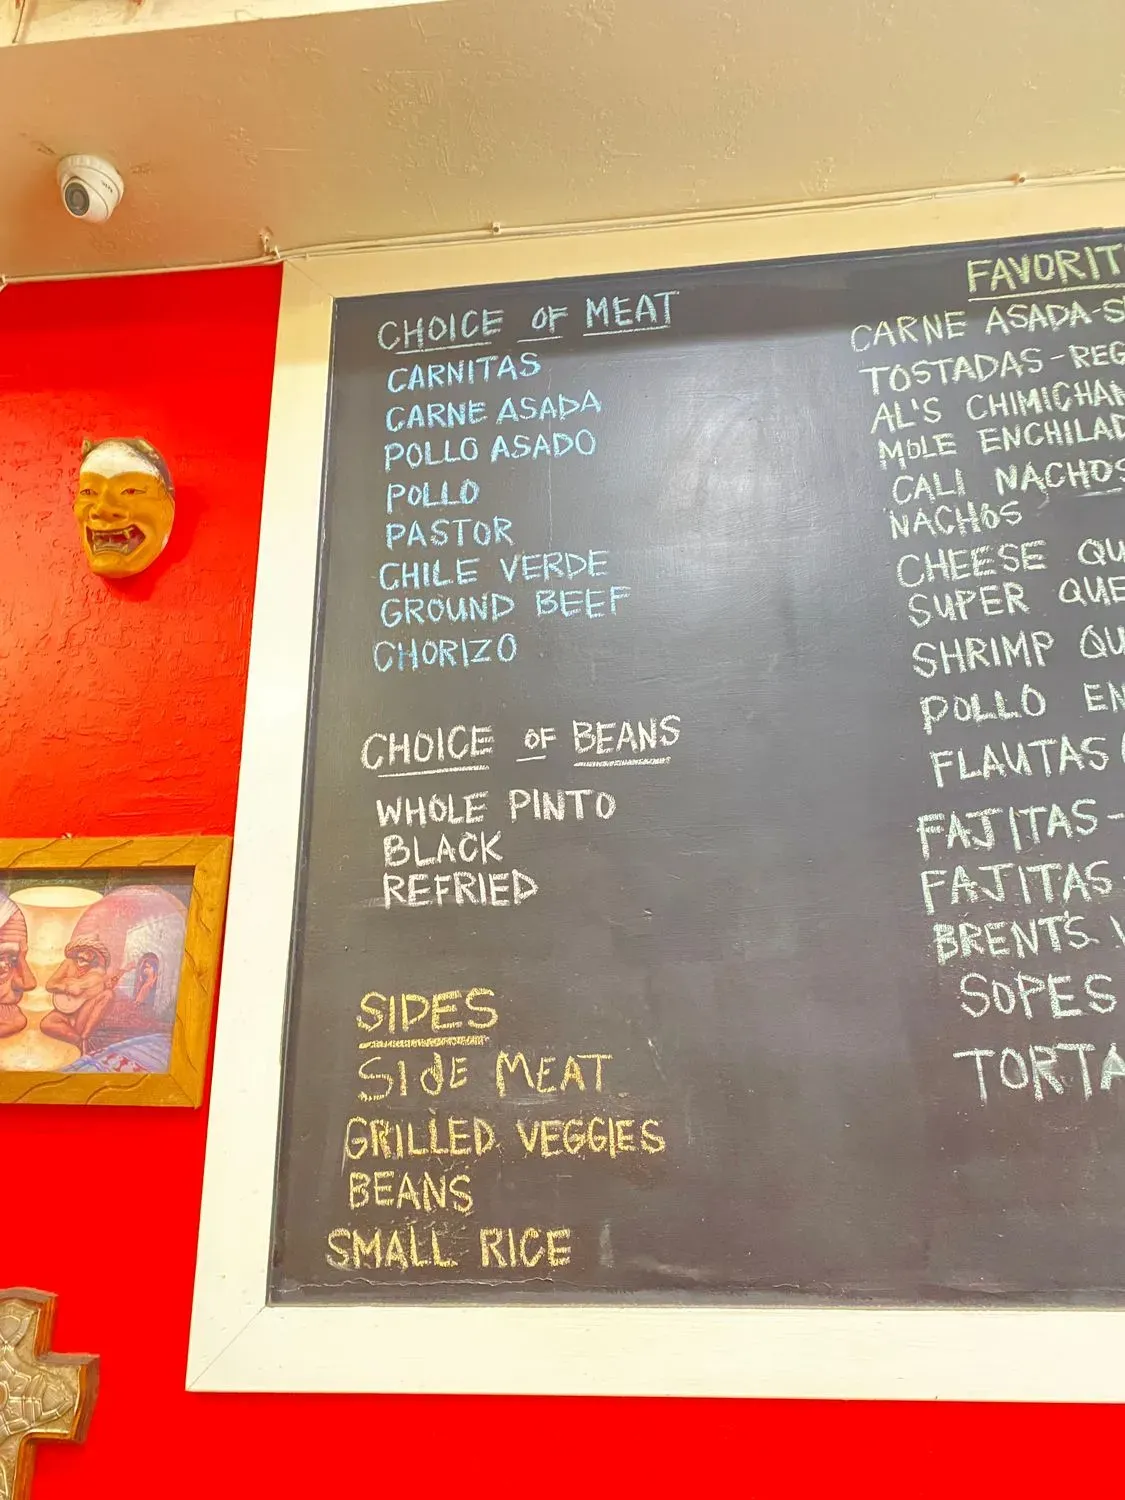 CHOICE OF MEAT
CARNITAS
CARNE ASADA
POLLO ASADO
POLLO
PASTOR
CHILE VERDE
GROUND BEEF
CHORIZO
CHOICE OF BEANS
WHOLE PINTO
BLACK
REFRIED
SIDES
SIdE MEAT
GRILLED VEGGIES
BEANS
SMALL RICE
FAVORIT
CARNE ASADA-S
TOSTADAS-REG
AL'S CHIMICHAN
MOLE ENCHILAD
CALI NACHOS
NACHOS
CHEESE QU
SUPER QUE
SHRIMP QU
POLLO EN
FLAUTAS (
FAJITAS-
FAJITAS-
BRENT'S
SOPES
TORTA